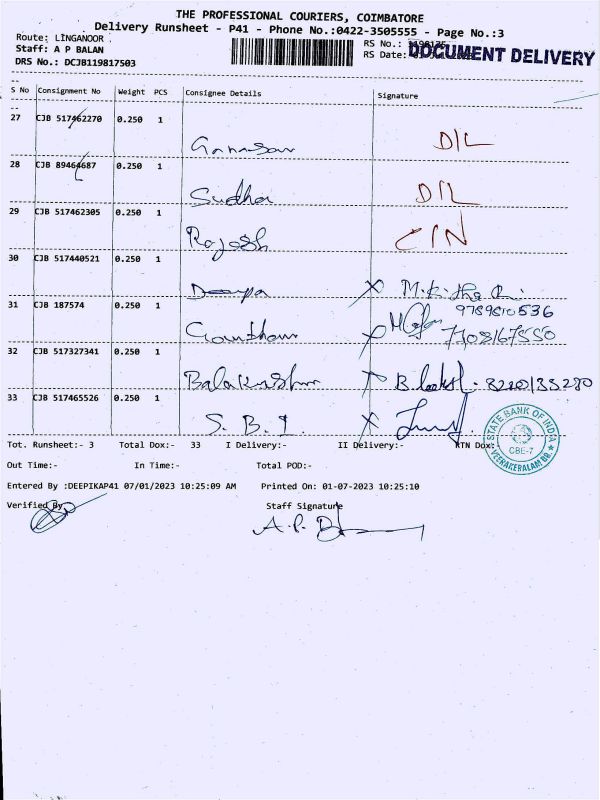 THE PROFESSIONAL COURIERS, COIMBATORE
Delivery Runsheet - P41 - Phone No.:0422-3505555 - Page No.:3
Route: LINGANOOR .
RS No.:
Staff: A P BALAN
RS Date:
DOCUMENT DELIVERY
DRS No.: DCJB119817503
S No Consignment No Weight PCS Consignee Details Signature
27 CJB 517462270 0.250 1 D/L
28 CJB 89464687 0.250 1 Sudha D/L
29 CJB 517462305 0.250 1 Rajesh C/N
30 CJB 517440521 0.250 1 Deepa
31 CJB 187574 0.250 1 Gowtham
32 CJB 517327341 0.250 1 Balakrishnan
33 CJB 517465526 0.250 1 S.B.I.
STATE BANK OF INDIA
CBE-7
VEERAKERALAM BR.
Tot. Runsheet:- 3 Total Dox:- 33 I Delivery:- II Delivery:- RTN Dox:
Out Time:- In Time:- Total POD:-
Entered By :DEEPIKAP41 07/01/2023 10:25:09 AM Printed On: 01-07-2023 10:25:10
Verified By Staff Signature
A.P.